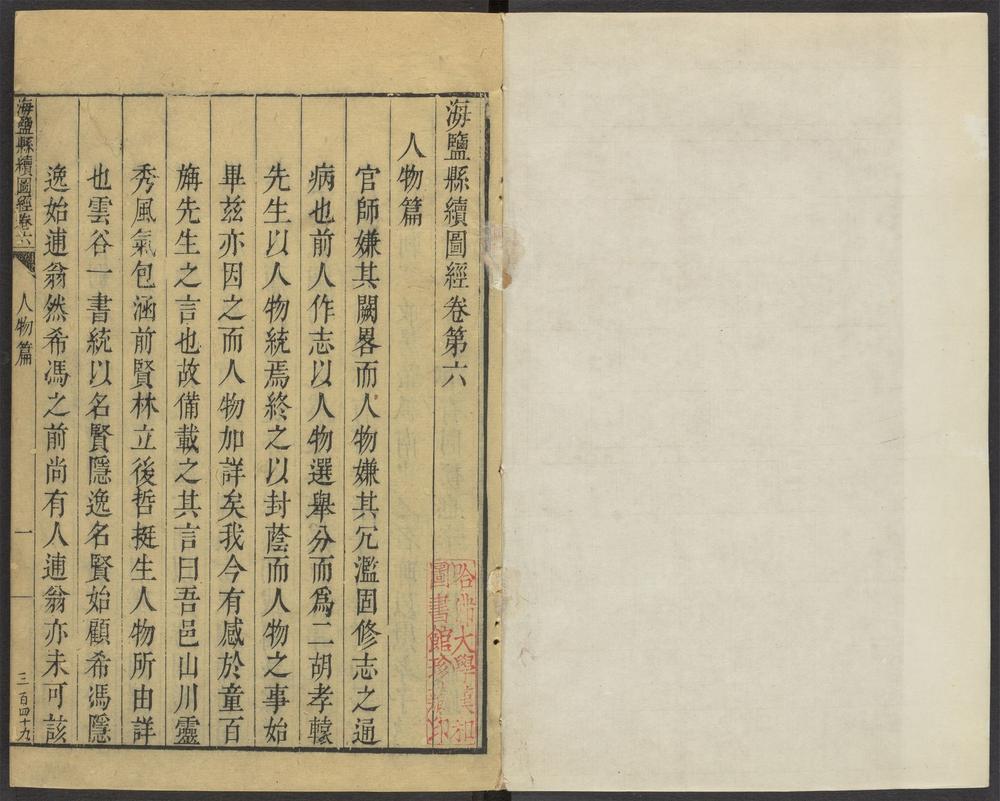 海鹽縣續圖經卷第六
人物篇
官師嫌其闕畧而人物嫌其冗濫固修志之通
病也前人作志以人物選舉分而爲二胡孝轅
先生以人物統焉終之以封蔭而人物之事始
畢茲亦因之而人物加詳矣我今有感於童百
旃先生之言也故備載之其言曰吾邑山川靈
秀風氣包涵前賢林立後哲挺生人物所由詳
也雲谷一書統以名賢隱逸名賢始顧希馮隱
逸始逋翁然希馮之前尚有人逋翁亦未可該
海鹽縣續圖經卷六
人物篇
一
三百四十九
哈佛大學漢和
圖書館珍藏印